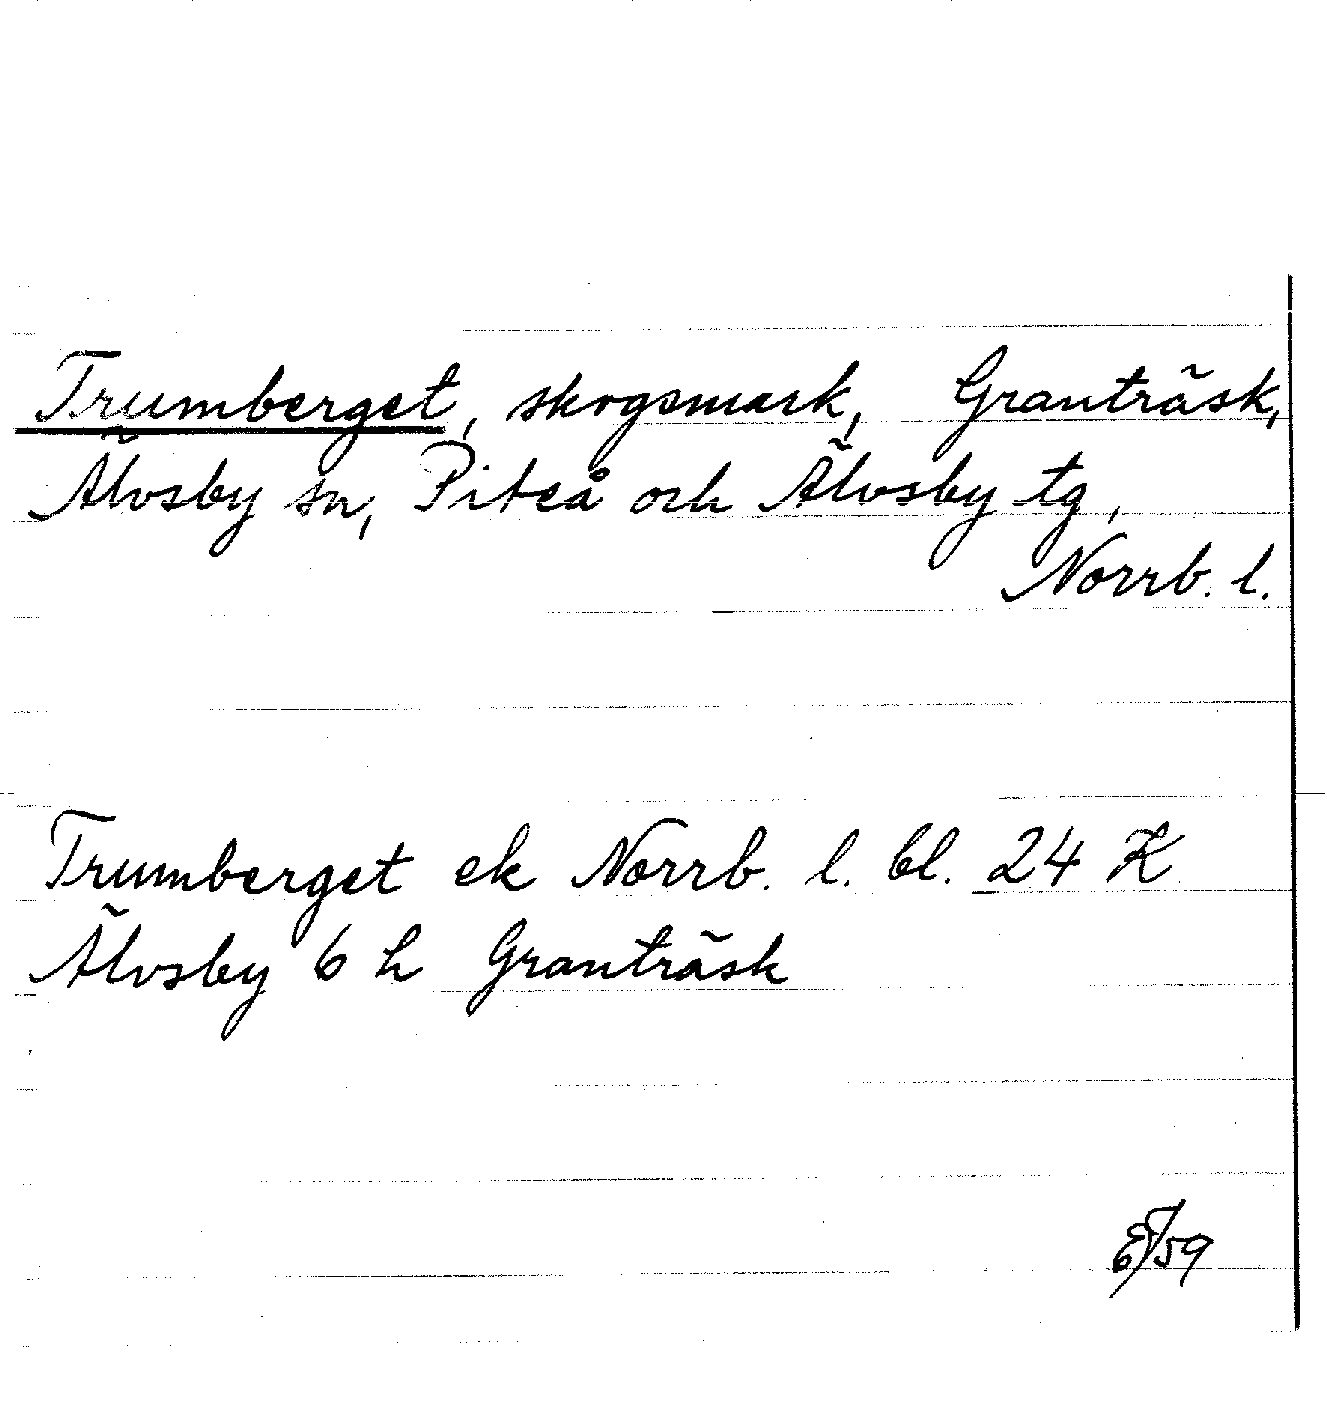 Trumberget, skogsmark, Granträsk,
Älvsby sn, Piteå och Älvsby tg,
Norrb. l.
Trumberget ek Norrb. l. bl. 24 K
Älvsby 6 h Granträsk